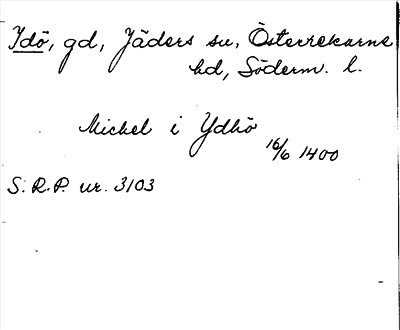 Idö, gd, Jäders sn, Österrekarne
hd, Söderm. l.
Michel i Ydhö
16/6 1400
S.R.P. nr. 3103